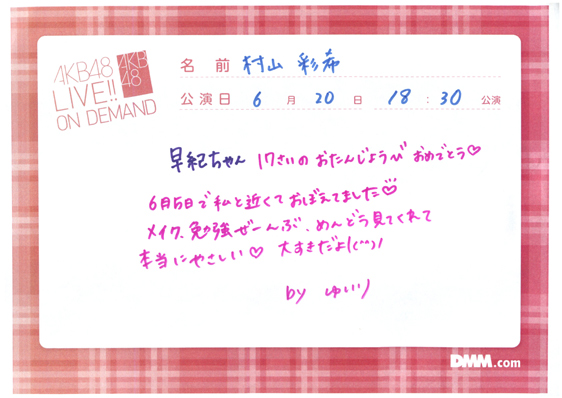 AKB48
LIVE!!
ON DEMAND
AKB
48
名 前 村山 彩希
公演日 6 月 20 日 18 : 30 公演
早紀ちゃん 17さいの おたんじょうび おめでとう♡
6月5日で私と近くておぼえてました♡
メイク、勉強ぜーんぶ、めんどう見てくれて
本当にやさしい♡ 大すきだよ!(^^)!
by ゆいり
DMM.com